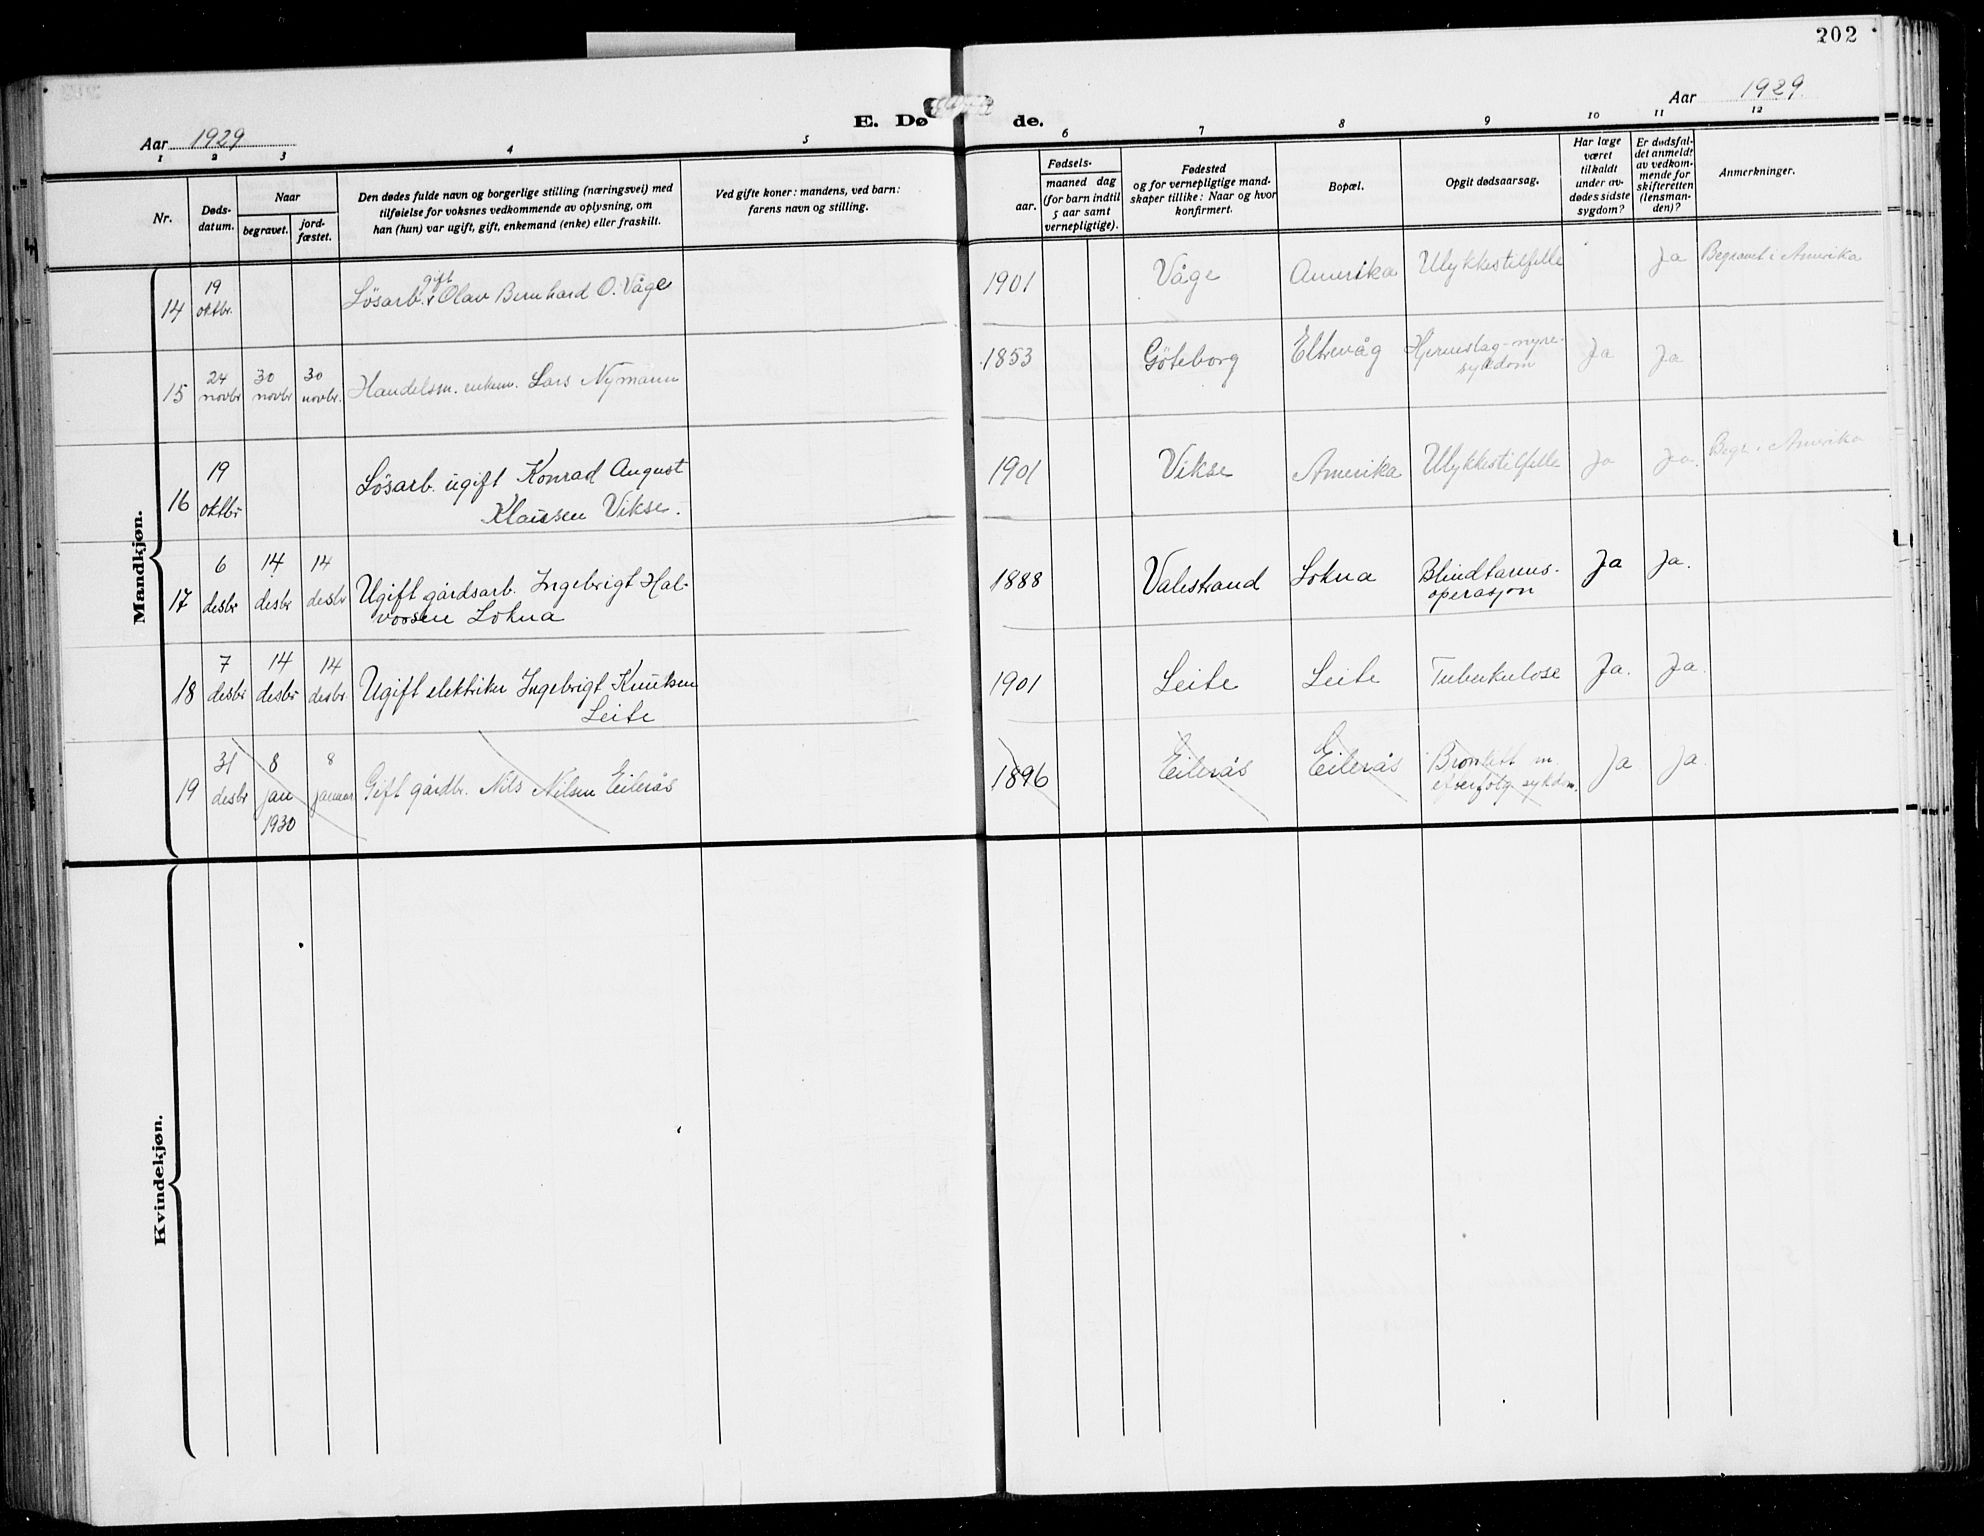 202
Aar 1929
Aar 1929.
E. Dø de.
1 2 3 4 5 6 7 8 9 10 11 12
Nr.
Døds-
datum.
Naar
begravet.
jord-
fæstet.
Den dødes fulde navn og borgerlige stilling (næringsvei) med
tilføielse for voksnes vedkommende av oplysning, om
han (hun) var ugift, gift, enkemand (enke) eller fraskilt.
Ved gifte koner: mandens, ved barn:
farens navn og stilling.
Fødsels-
aar.
maaned dag
(for barn indtil
5 aar samt
vernepligtige).
Fødested
og for vernepligtige mand-
skaper tillike: Naar og hvor
konfirmert.
Bopæl.
Opgit dødsaarsag.
Har læge
været
tilkaldt
under av-
dødes sidste
sygdom?
Er dødsfal-
det anmeldt
av vedkom-
mende for
skifteretten
(lensman-
den)?
Anmerkninger.
Mandkjøn.
14
19
oktbr.
gift
Lösarb. Olav Bernhard O. Våge
1901
Våge
Amerika
Ulykkestilfelle
Ja
Begravet i Amerika
15
24
novbr
30
novbr
30
novbr.
Handelsm. enkem. Lars Nymann
1853
Göteborg
Eltrevåg
Hjerneslag-nyre-
sykdom
Ja
Ja
16
19
oktbr
Lösarb. ugift Konrad August
Klaussen Vikse.
1901
Vikse
Amerika
Ulykkestilfelle
Ja
Ja.
Begr. i Amerika
17
6
desbr
14
desbr
14
desbr
Ugift gårdsarb. Ingebrigt Hal-
vorsen Lokna
1888
Valestrand
Lokna
Blindtarms-
operasjon
Ja
Ja.
18
7
desbr
14
desbr
14
desbr.
Ugift elektriker Ingebrigt Knutsen
Leite
1901
Leite
Leite
Tuberkulose
Ja.
Ja.
19
31
desbr
8
jan
1930
8
januar
Gift gårdbr. Nils Nilsen Eilerås
1896
Eilerås
Eilerås
Bronkitt m.
efterfølg sykdom.
Ja
Ja.
Kvindekjøn.